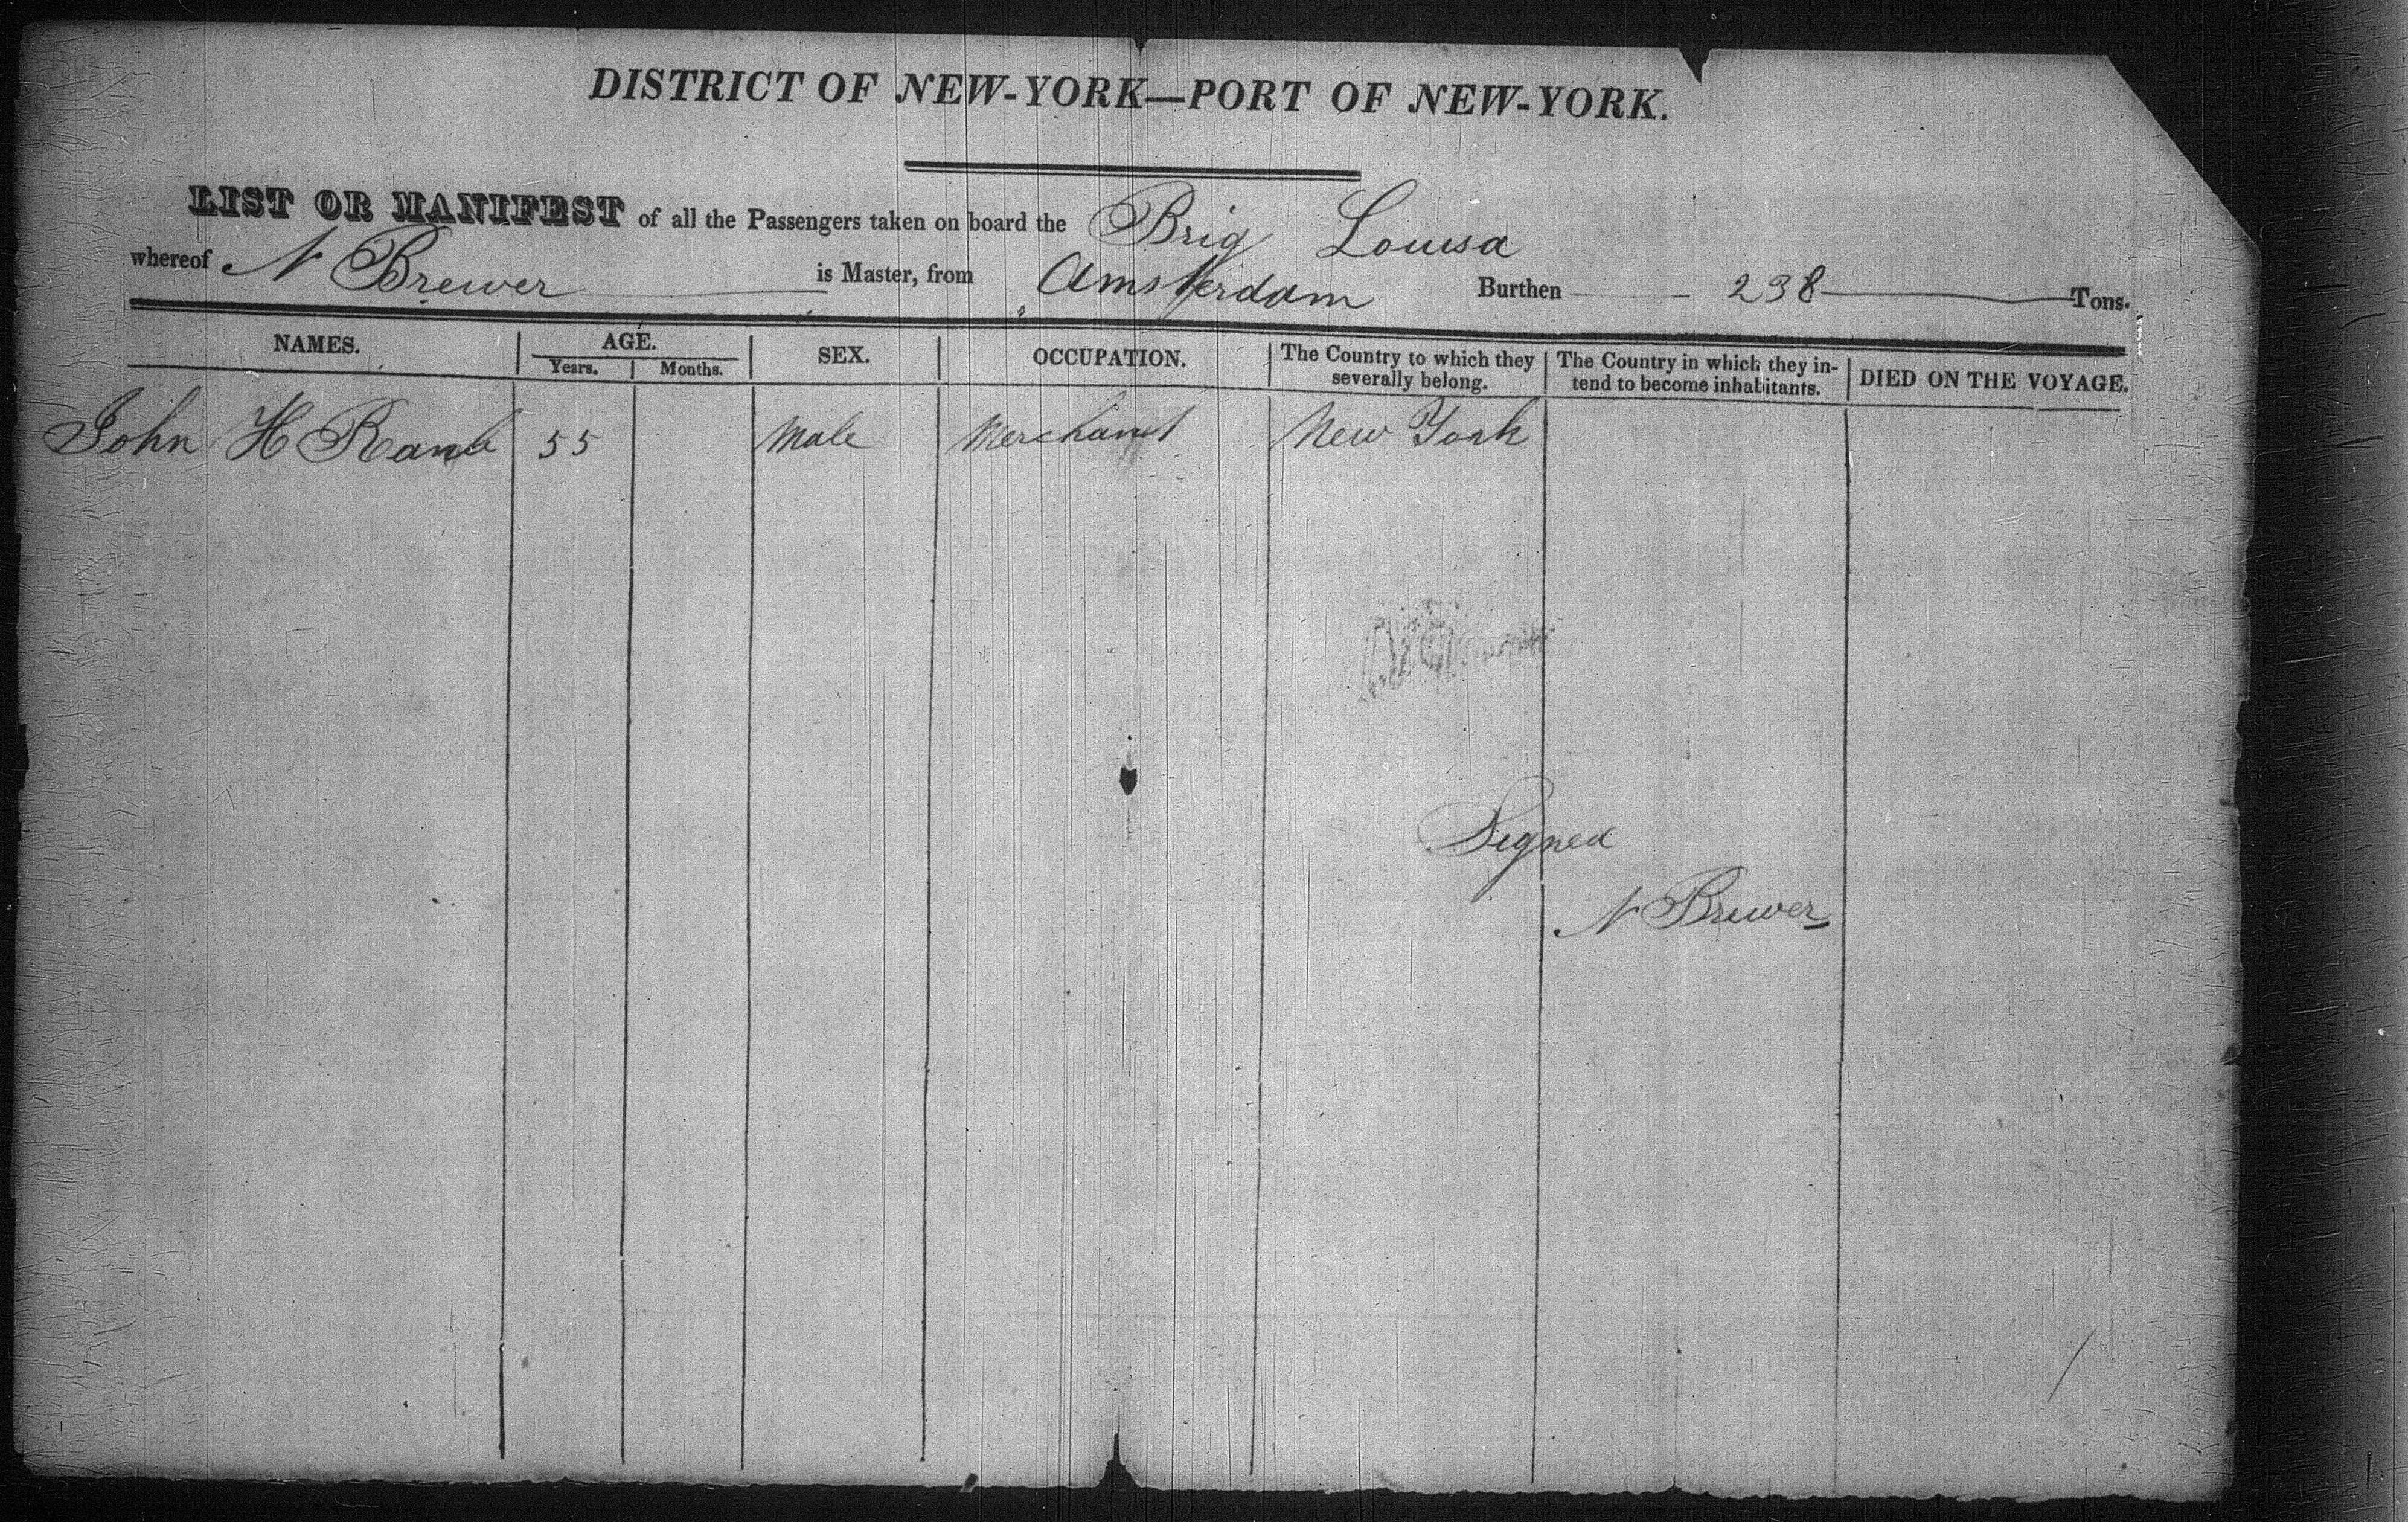 DISTRICT OF NEW-YORK—PORT OF NEW-YORK.
LIST OR MANIFEST of all the Passengers taken on board the Brig Louisa
whereof N Brewer is Master, from Amsterdam Burthen 238 Tons.
NAMES. AGE. SEX. OCCUPATION. The Country to which they severally belong. The Country in which they intend to become inhabitants. DIED ON THE VOYAGE.
Years. Months.
John H 55 Male Merchant New York
Signed
N Brewer